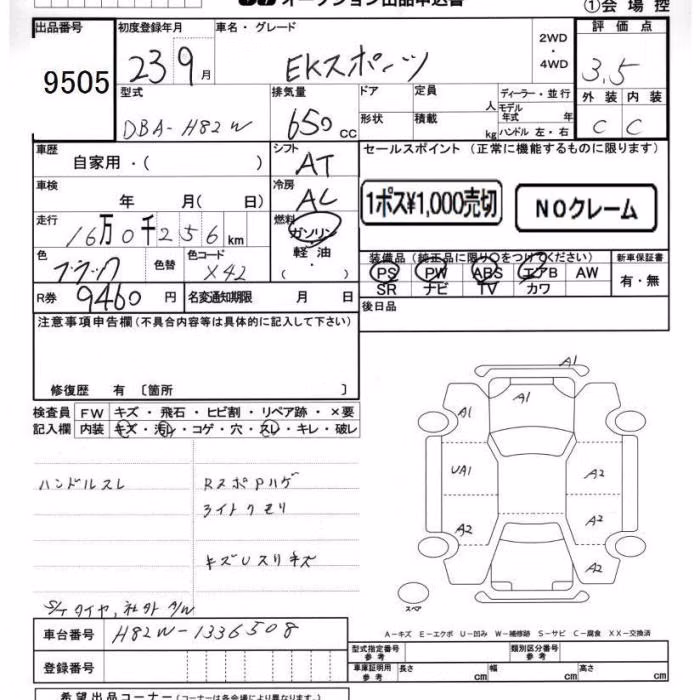 オークション出品申込書
①会場控
出品番号 9505
初度登録年月 23 9月
車名・グレード EKスポーツ
2WD・4WD
評価点 3.5
外装 内装
C C
型式 DBA-H82W
排気量 650 cc
ドア 定員 人
形状 積載 kg
ディーラー・並行
モデル年式 年
ハンドル 左・右
車歴 自家用・( )
シフト AT
セールスポイント (正常に機能するものに限ります)
車検 年 月( 日)
冷房 AC
1ポス¥1,000売切
NOクレーム
走行 16万0千256km
燃料 ガソリン
軽油
( ・ )
色 ブラック
色替
色コード X42
装備品(純正品に限り○をつけてください)
新車保証書
PS PW ABS エアB AW
SR ナビ TV カワ
有・無
R券 9460 円
名変通知期限 月 日
後日品
注意事項申告欄(不具合内容等は具体的に記入して下さい)
修復歴 有 〔箇所 〕
検査員記入欄
FW キズ・飛石・ヒビ割・リペア跡・×要
内装 キズ・汚レ・コゲ・穴・スレ・キレ・破レ
ハンドルスレ
RスポPハゲ
ライトクモリ
キズUスリキズ
S/Tタイヤ、社外A/W
A1
A1
A1
UA1
A2
A2
A2
A2
スペア
A-キズ E-エクボ U-凹み W-補修跡 S-サビ C-腐食 XX-交換済
車台番号 H82W-1336508
登録番号
型式指定番号 参考
類別区分番号 参考
車庫証明用 参考
長さ cm 幅 cm 高さ cm
希望出品コーナー(コーナーは各会場により異なります)